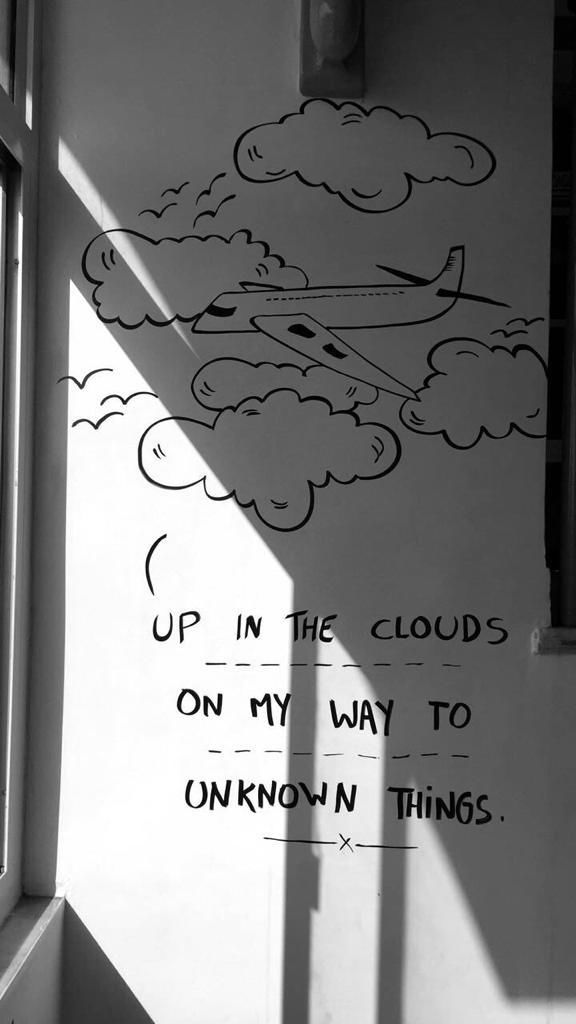 UP IN THE CLOUDS
ON MY WAY TO
UNKNOWN THiNGS.